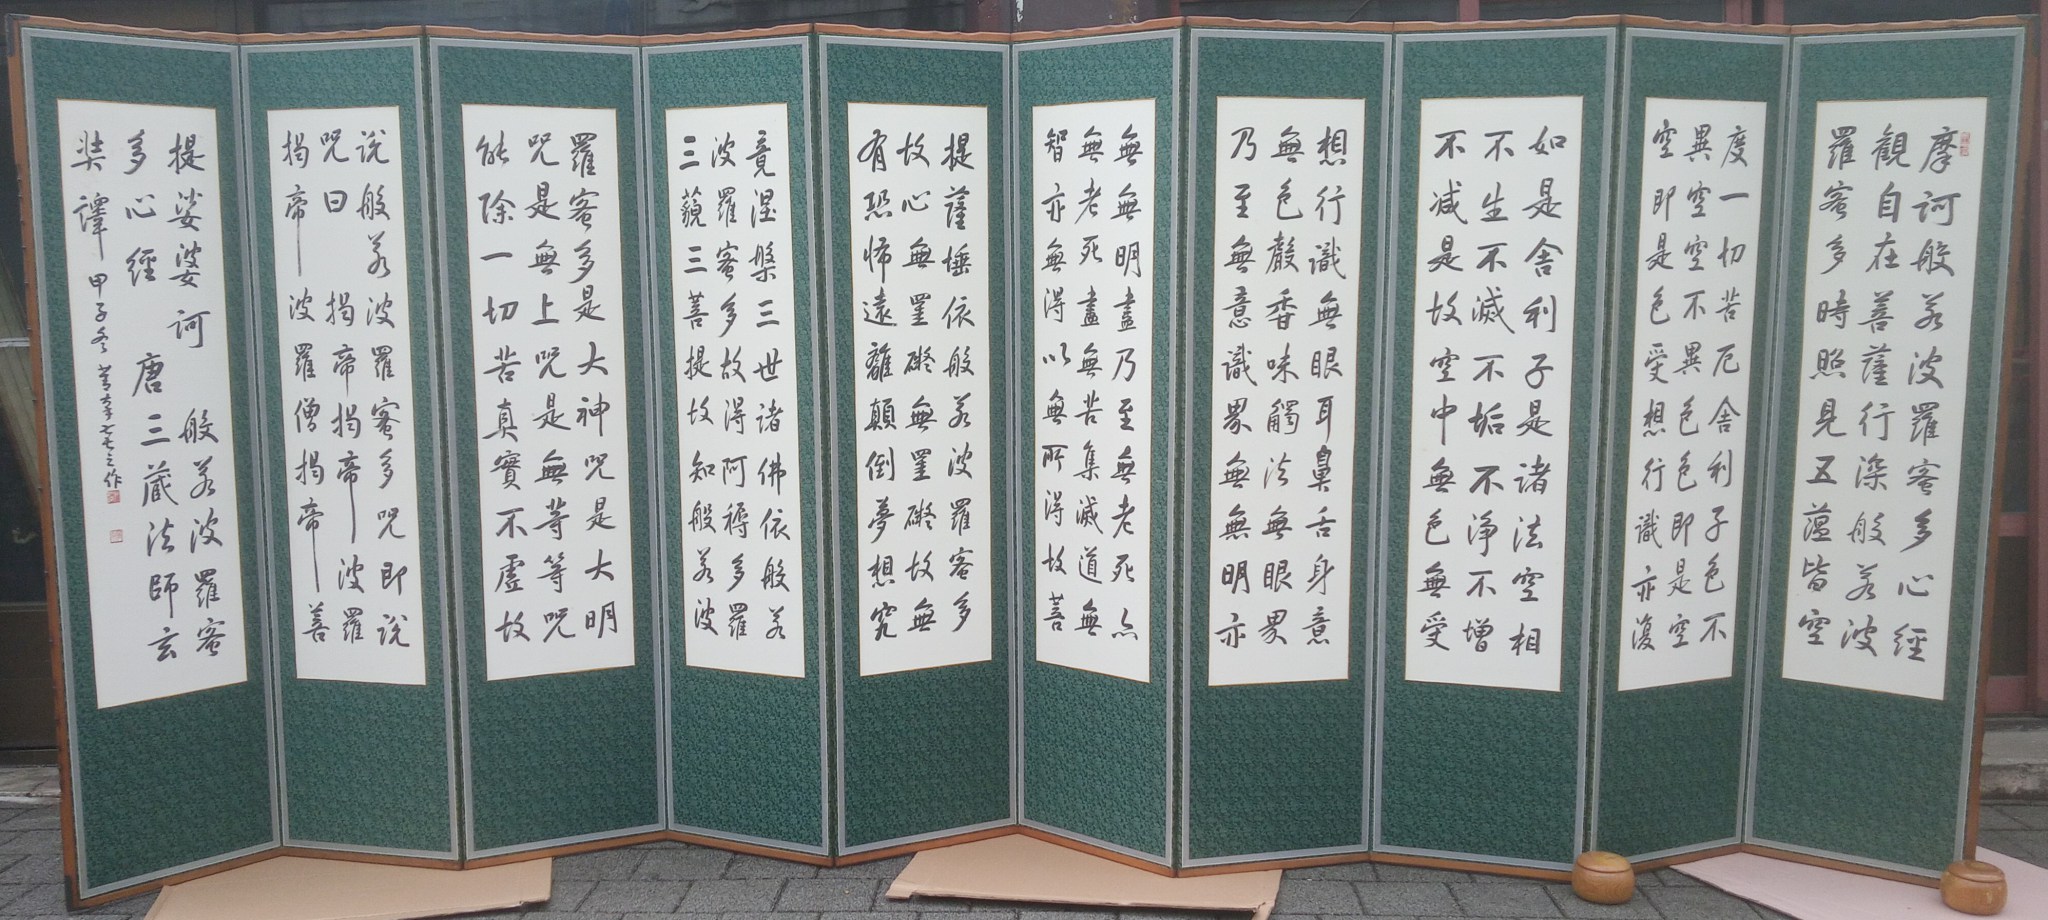 摩訶般若波羅蜜多心經
觀自在菩薩行深般若波
羅蜜多時照見五蘊皆空
度一切苦厄舍利子色不
異空空不異色色即是空
空即是色受想行識亦復
如是舍利子是諸法空相
不生不滅不垢不淨不增
不減是故空中無色無受
想行識無眼耳鼻舌身意
無色聲香味觸法無眼界
乃至無意識界無無明亦
無無明盡乃至無老死亦
無老死盡無苦集滅道無
智亦無得以無所得故菩
提薩埵依般若波羅蜜多
故心無罣礙無罣礙故無
有恐怖遠離顛倒夢想究
竟涅槃三世諸佛依般若
波羅蜜多故得阿耨多羅
三藐三菩提故知般若波
羅蜜多是大神呪是大明
呪是無上呪是無等等呪
能除一切苦真實不虛故
說般若波羅蜜多呪即說
呪曰 揭帝揭帝 波羅
揭帝 波羅僧揭帝 菩
提娑婆訶 般若波羅蜜
多心經 唐三藏法師玄
奘譯 甲子冬 作